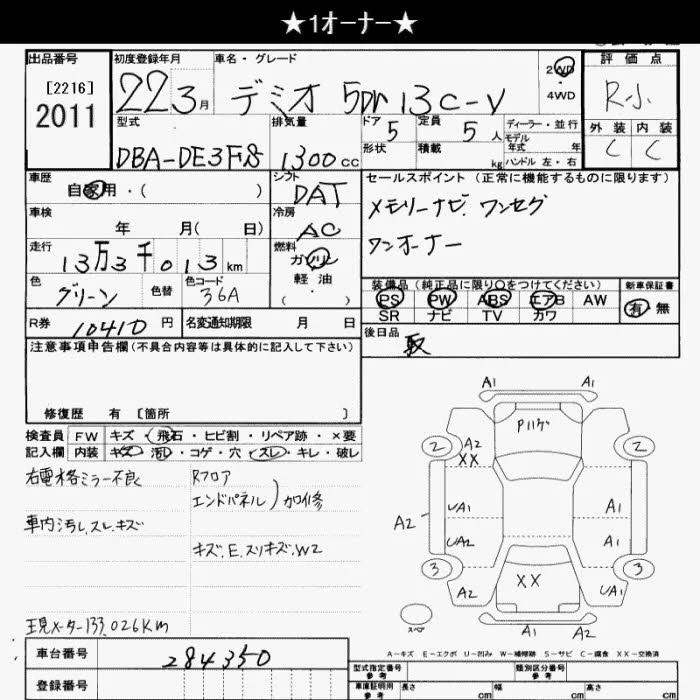 ★1オーナー★
出品番号
[2216]
2011
初度登録年月
22 3月
車名・グレード
デミオ 5Dr 13C-V
2WD
4WD
評価点
R小
型式
DBA-DE3FS
排気量
1300 CC
ドア 5
形状
定員 5 人
積載 kg
ディーラー・並行
モデル
年式 年
ハンドル 左・右
外装 内装
C C
車歴
自家用・( )
シフト
DAT
セールスポイント (正常に機能するものに限ります)
メモリーナビ. ワンセグ
ワンオーナー
車検
年 月( 日)
冷房
AC
走行
13万3千013km
燃料
ガソリン
軽油
( )
色
グリーン
色替
色コード
36A
装備品 (純正品に限り○をつけてください)
PS PW ABS エアB AW
SR ナビ TV カワ
新車保証書
有 無
R券 10410 円
名変通知期限 月 日
後日品
取
注意事項申告欄(不具合内容等は具体的に記入して下さい)
修復歴 有 [箇所 ]
検査員
記入欄
FW キズ・飛石・ヒビ割・リペア跡・×要
内装 キズ・汚れ・コゲ・穴・スレ・キレ・破レ
右電格ミラー不良
車内汚し.スレ.キズ
現メーター133,026Km
Rフロア
エンドパネル)加修
キズ.E.スリキズ.W2
A1 A1
Pハゲ
2 2
A2
XX
A2
UA1 A1
UA2 A1
3 3
A2 UA1
XX
A1 A2
スペア
A-キズ E-エクボ U-凹み W-補修跡 S-サビ C-腐食 XX-交換済
車台番号 284350
登録番号
型式指定番号
参考
類別区分番号
参考
車庫証明用
参考
長さ cm
幅 cm
高さ cm